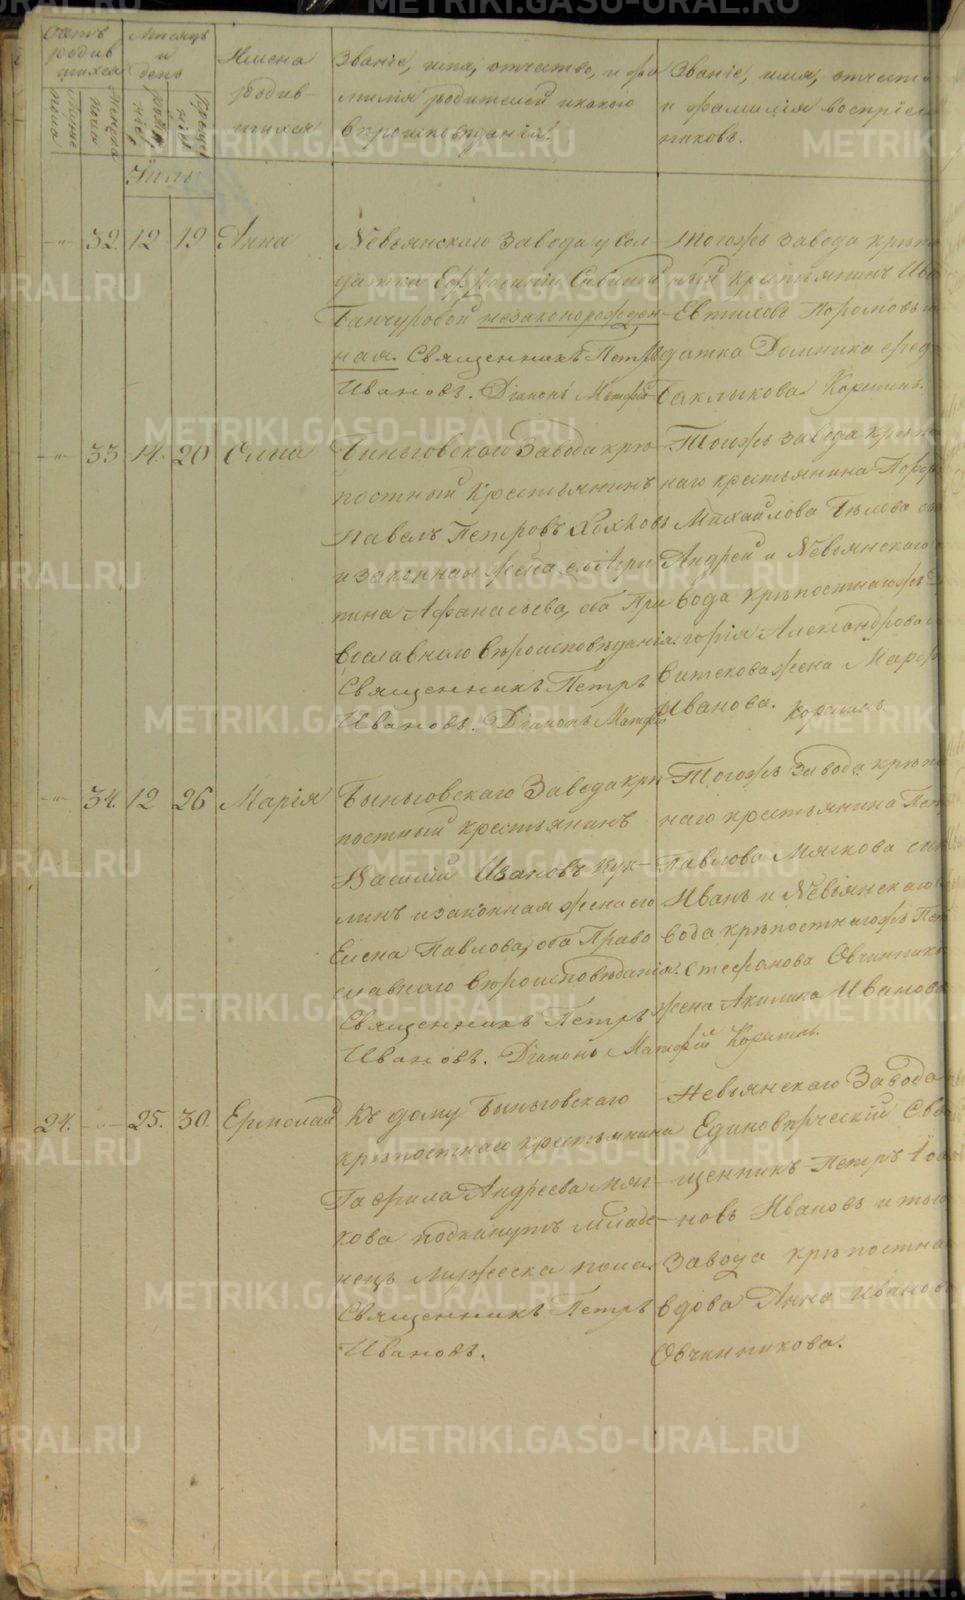 Счетъ родив шихся
Мужеска пола
Женска пола
Мѣсяцъ и день
рожде нія
креще нія
Имена родив- шихся
Званіе, имя, отчество, и фа милія родителей и какого вѣроисповѣданія.
Званіе, имя, отчест и фамилія воспріем никовъ.
Іюль
32. 12 19 Анна
Невьянскаго Завода у Сол
датки Ефросиніи Савиной
Банчуровой незаконорожден-
ная. Священникъ Петръ
Ивановъ. Діаконъ Матфей
Тогожъ завода крѣп
ной крестьянинъ Ива
Евтиховъ
датка Домника
Баклыкова Корятинъ.
33 14. 20 Ольга
Быньговскаго Завода крѣ
постный Крестьянинъ
Павелъ Петровъ Хохловъ
и законная жена его
Афанасьева, оба Пра
вославнаго вѣроисповѣданія.
Священникъ Петръ
Ивановъ. Діаконъ Матфей
Тогожъ завода крѣпо
наго крестьянина
Михайлова Бѣлова сы
Андрей и Невьянскаго
вода крѣпостнагожъ
горія Александрова
жена Марфа
Иванова. Корятинъ
34. 12 26 Марія
Быньговскаго Завода крѣ
постный крестьянинъ
Василій Ивановъ Кук-
линъ и законная жена его
Елена Павлова, оба Право
славнаго вѣроисповѣданія.
Священникъ Петръ
Ивановъ. Діаконъ Матфей Корятинъ.
Тогожъ Завода крѣпо
наго крестьянина Пет
Павлова Мягкова сын
Иванъ и Невьянскаго
вода крѣпостнагожъ Пет
Стефанова Овчиннико
жена Акилина Иванова
24. 25. 30. Ермолай
Къ дому Быньговскаго
крѣпостнаго крестьянина
Гаврила Андреева Мяг-
кова подкинутъ младе-
нецъ мужеска пола.
Священникъ Петръ
Ивановъ.
Невьянскаго Завода
Единовѣрческій Свя
щенникъ Петръ Іоа
новъ Ивановъ и того
Завода крѣпостна
вдова Анна Иванова
Овчинникова.
METRIKI.GASO-URAL.RU